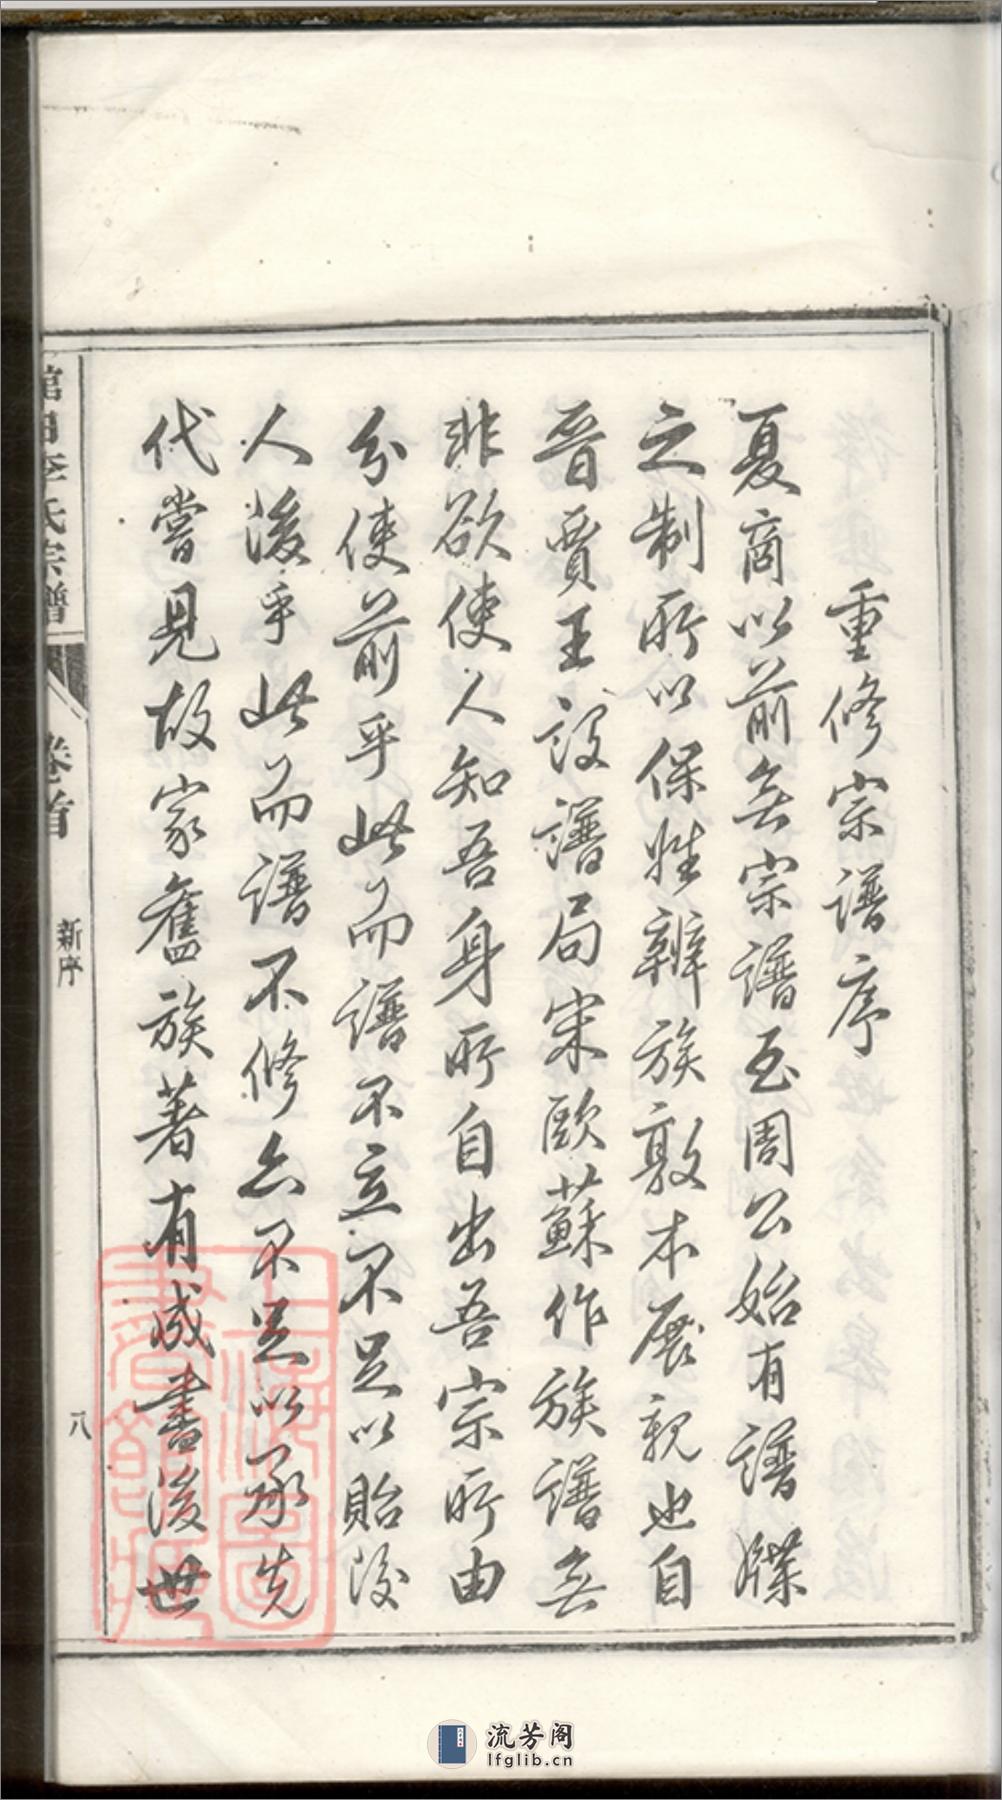 重修宗譜序
夏商以前無宗譜至周公始有譜牒
之制所以保姓辨族敦本展親也自
晉賈王設譜局宋歐蘇作族譜無
非欲使人知吾身所自出吾宗所由
分使前乎此而譜不立不足以貽後
人後乎此而譜不修亦不足以承先
代嘗見故家舊族著有成書後世
田李氏宗譜
卷首
新序
八
上海圖書館藏
流芳阁
lfglib.cn